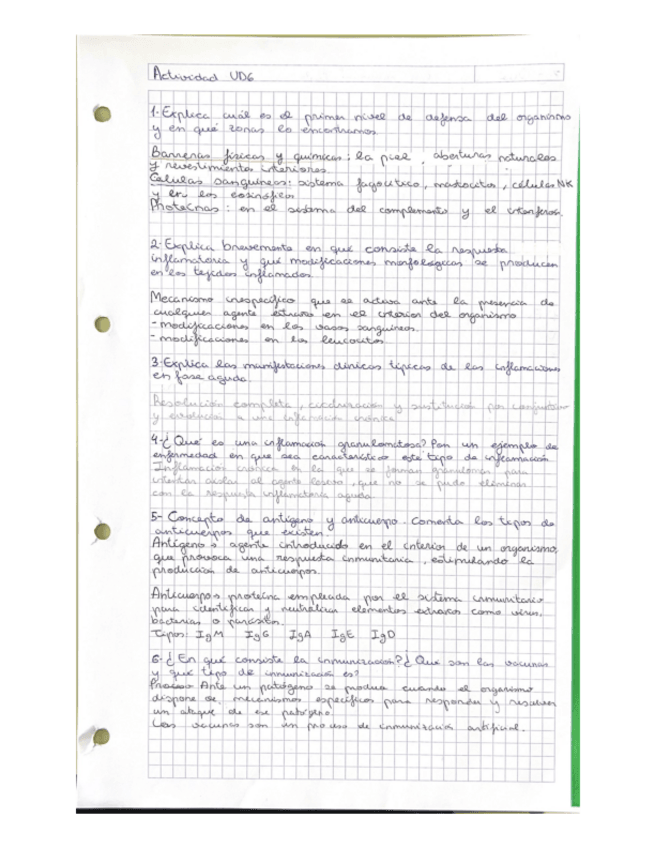 Actividad UD6
1. Explica cuál es el primer nivel de defensa del organismo
y en qué zonas lo encontramos.
Barreras físicas y químicas: la piel, aberturas naturales
y revestimientos interiores.
Células sanguíneas: sistema fagocítico, mastocitos, células NK
y en los eosinófilos
Proteínas: en el sistema del complemento y el interferón.
2. Explica brevemente en qué consiste la respuesta
inflamatoria y qué modificaciones morfológicas se producen
en los tejidos inflamados.
Mecanismo inespecífico que se activa ante la presencia de
cualquier agente extraño en el interior del organismo
- modificaciones en los vasos sanguíneos.
- modificaciones en los leucocitos
3. Explica las manifestaciones clínicas típicas de las inflamaciones
en fase aguda.
Resolución completa, cicatrización y sustitución por conjuntivo
y evolución a una inflamación crónica
4- ¿Qué es una inflamación granulomatosa? Pon un ejemplo de
enfermedad en que sea característico este tipo de inflamación
Inflamación crónica en la que se forman granulomas para
intentar aislar al agente lesivo, que no se pudo eliminar
con la respuesta inflamatoria aguda.
5- Concepto de antígeno y anticuerpo. Comenta los tipos de
anticuerpos que existen.
Antígeno: agente introducido en el interior de un organismo,
que provoca una respuesta inmunitaria, estimulando la
producción de anticuerpos.
Anticuerpo: proteína empleada por el sistema inmunitario
para identificar y neutralizar elementos extraños como virus,
bacterias o parásitos.
Tipos: IgM IgG IgA IgE IgD
6- ¿En qué consiste la inmunización? ¿Qué son las vacunas
y qué tipo de inmunización es?
Proceso Ante un patógeno se produce cuando el organismo
dispone de mecanismos específicos para responder y resolver
un ataque de ese patógeno.
Las vacunas son un proceso de inmunización artificial.